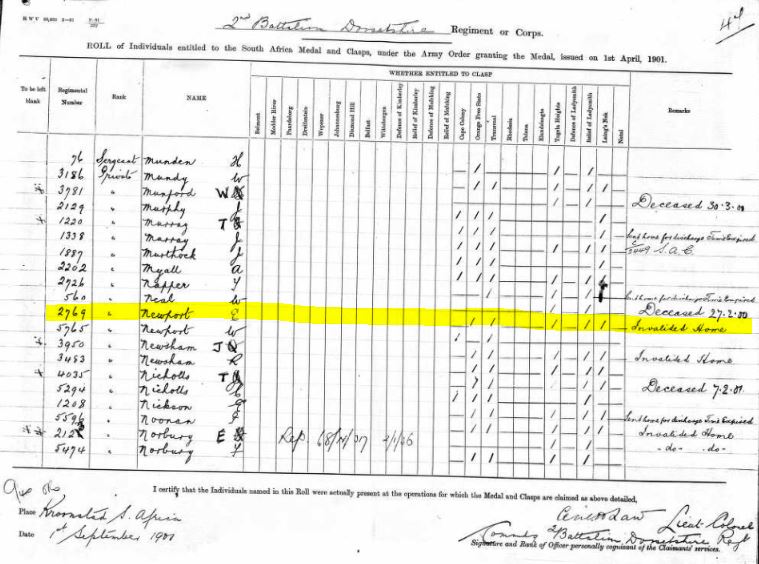 2nd Battalion Dorsetshire Regiment or Corps.
ROLL of Individuals entitled to the South Africa Medal and Clasps, under the Army Order granting the Medal, issued on 1st April, 1901.
WHETHER ENTITLED TO CLASP
To be left blank Regimental Number Rank NAME Belmont Modder River Paardeberg Driefontein Wepener Johannesburg Diamond Hill Belfast Wittebergen Defence of Kimberley Relief of Kimberley Defence of Mafeking Relief of Mafeking Cape Colony Orange Free State Transvaal Rhodesia Talana Elandslaagte Tugela Heights Defence of Ladysmith Relief of Ladysmith Laing's Nek Natal Remarks
76 Sergeant Munden H
3186 Private Mundy W
3781 " Munford W
2129 " Murphy J Deceased 30.3.01
1220 " Murray T
1338 " Murray J Sent home for discharge Time Expired
1887 " Murthock J S.A.C.
2202 " Myall A
2726 " Napper
560 " Neal W Sent home for discharge Time Expired
2769 " Newport E Deceased 27.2.00
5765 " Newport W Invalided Home
3950 " Newsham J
3483 " Newsham R Invalided Home
4035 " Nicholls T
5294 " Nicholls Deceased 7.2.01
1208 " Nickson
5596 " Noonan Sent home for discharge Time Expired
" Norbury E Rep Invalided Home
5474 " Norbury - do - - do -
I certify that the Individuals named in this Roll were actually present at the operations for which the Medal and Clasps are claimed as above detailed,
Place Kroonstad S. Africa
Date 1st September 1901
Lieut-Colonel
2 Battalion Dorsetshire Regt
Signature and Rank of Officer personally cognisant of the Claimants' services.